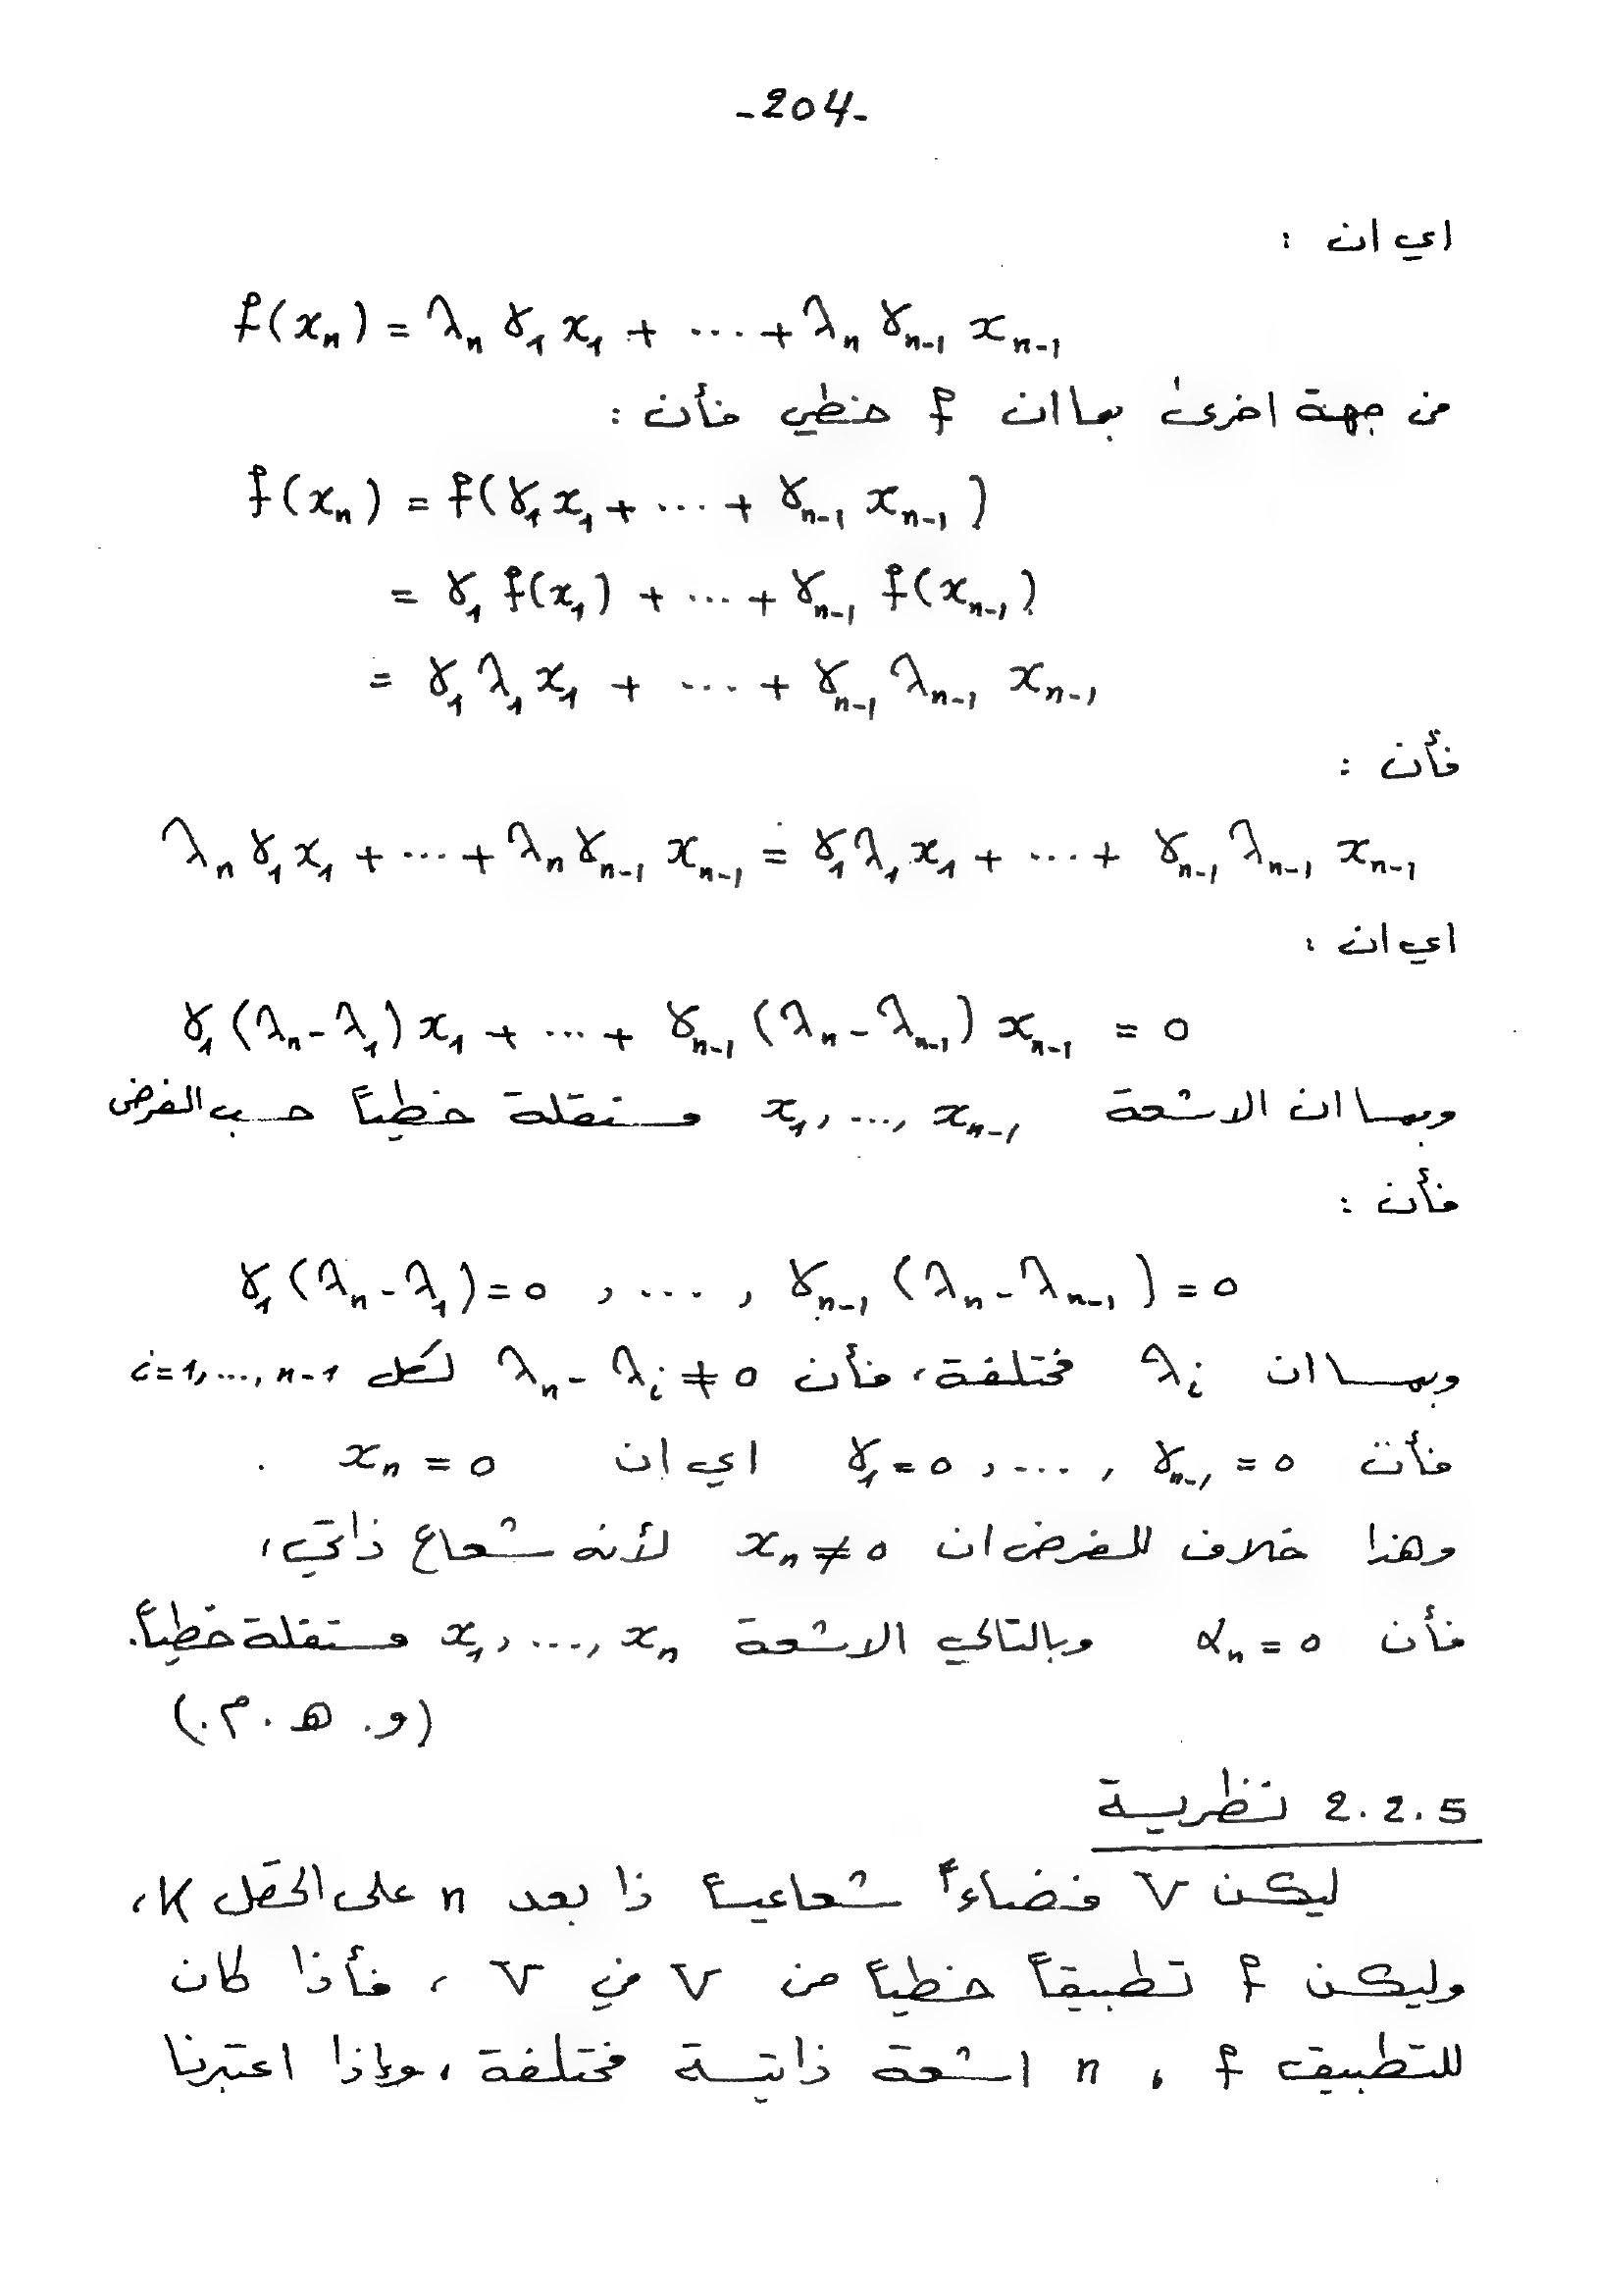 -204-
اي ان :
f(xₙ) = λₙ γ₁ x₁ + ... + λₙ γₙ₋₁ xₙ₋₁
من جهة اخرىٰ بما ان f خطي فأن :
f(xₙ) = f(γ₁ x₁ + ... + γₙ₋₁ xₙ₋₁)
= γ₁ f(x₁) + ... + γₙ₋₁ f(xₙ₋₁)
= γ₁ λ₁ x₁ + ... + γₙ₋₁ λₙ₋₁ xₙ₋₁
فأن :
λₙ γ₁ x₁ + ... + λₙ γₙ₋₁ xₙ₋₁ = γ₁ λ₁ x₁ + ... + γₙ₋₁ λₙ₋₁ xₙ₋₁
اي ان :
γ₁ (λₙ - λ₁) x₁ + ... + γₙ₋₁ (λₙ - λₙ₋₁) xₙ₋₁ = 0
وبما ان الاشعة x₁, ..., xₙ₋₁ مستقلة خطياً حسب الفرض
فأن :
γ₁ (λₙ - λ₁) = 0 , ... , γₙ₋₁ (λₙ - λₙ₋₁) = 0
وبما ان λᵢ مختلفة، فأن λₙ - λᵢ ≠ 0 لكل i = 1, ..., n-1
فأن γ₁ = 0 , ... , γₙ₋₁ = 0 اي ان xₙ = 0 .
وهذا خلاف للفرض ان xₙ ≠ 0 لأنه شعاع ذاتي،
فأن αₙ = 0 وبالتالي الاشعة x₁, ..., xₙ مستقلة خطياً.
(و. ه. م.)
2.2.5 نظرية
ليكن V فضاءً شعاعياً ذا بعد n على الحقل K،
وليكن f تطبيقاً خطياً من V في V ، فأذا كان
للتطبيق f ، n اشعة ذاتية مختلفة، وإذا اعتبرنا